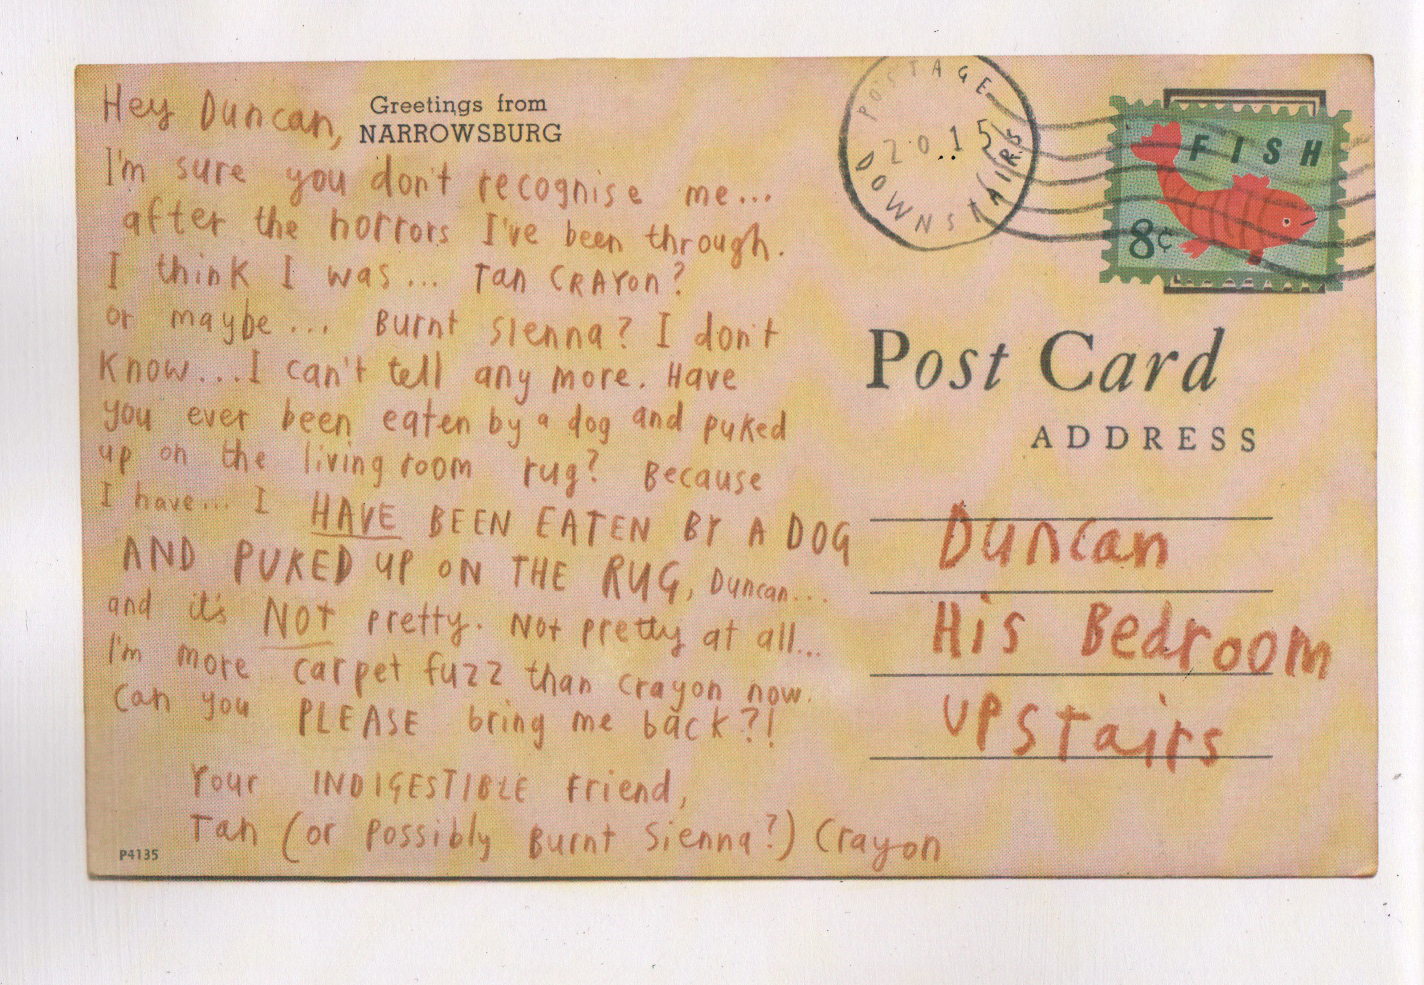 Hey Duncan,
Greetings from
NARROWSBURG
I'm sure you don't recognise me...
after the horrors I've been through.
I think I was... Tan CRAYON?
or maybe... Burnt Sienna? I don't
know...I can't tell any more. Have
you ever been eaten by a dog and puked
up on the living room rug? Because
I have... I HAVE BEEN EATEN BY A DOG
AND PUKED UP ON THE RUG, Duncan...
and it's NOT pretty. Not pretty at all...
I'm more carpet fuzz than crayon now.
Can you PLEASE bring me back?!
Your INDIGESTIBLE Friend,
Tan (or possibly Burnt Sienna?) Crayon
P4135
POSTAGE
2015
DOWNSTAIRS
FISH
8¢
Post Card
ADDRESS
Duncan
His Bedroom
UPStairs